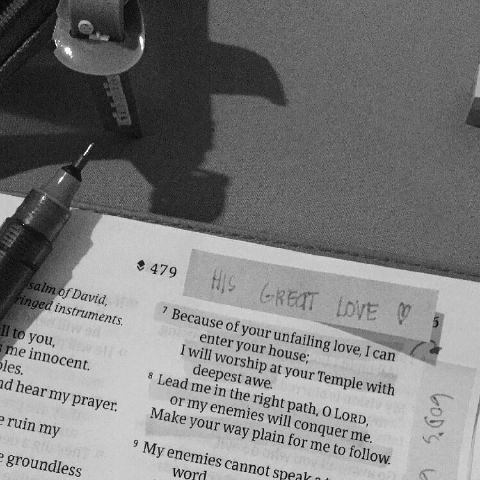 479
HIS GREAT LOVE ♡
salm of David,
ringed instruments.
ll to you,
s me innocent.
ples.
nd hear my prayer.
e ruin my
e groundless
7 Because of your unfailing love, I can
enter your house;
I will worship at your Temple with
deepest awe.
8 Lead me in the right path, O LORD,
or my enemies will conquer me.
Make your way plain for me to follow.
9 My enemies cannot speak a
word
5
GOD'S